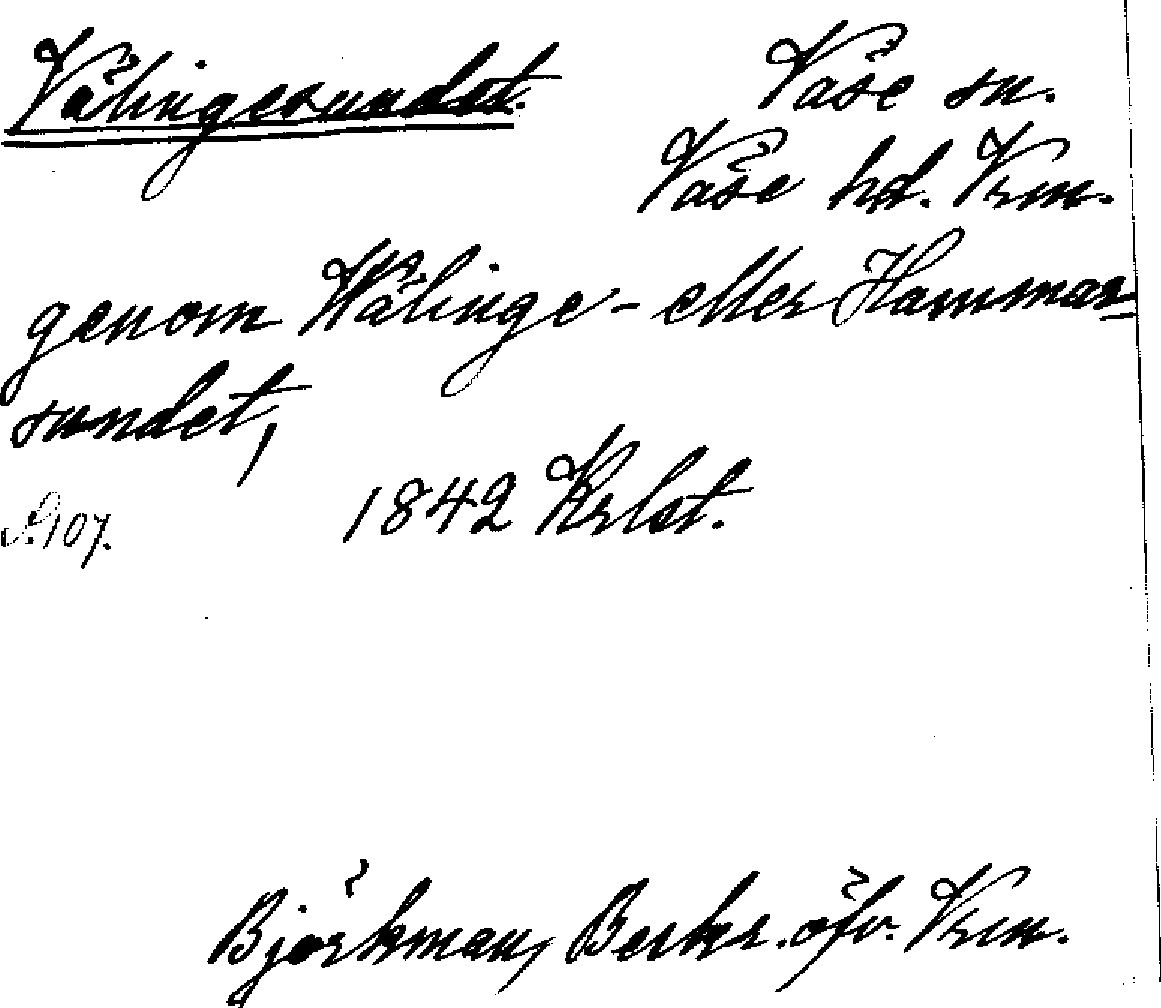 Välingesundet. Väse sn.
Väse hd. Vrm.
genom Wälinge- eller Hammar-
sundet,
S. 107. 1842 Krlst.
Björkman, Beskr. öfv. Vrm.